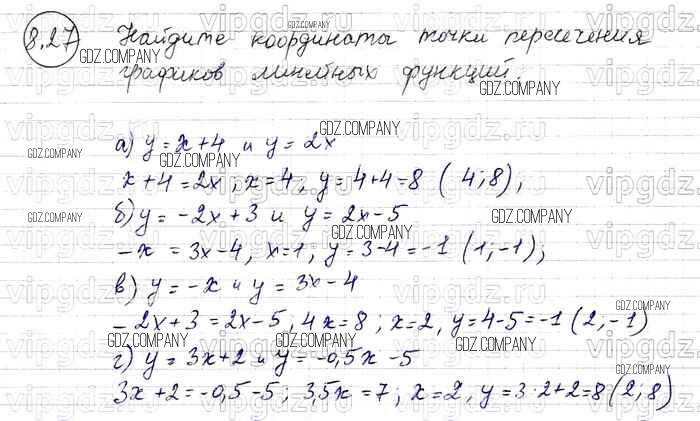 8.27 Найдите координаты точки пересечения
графиков линейных функций.
а) y = x+4 и y = 2x
x+4=2x; x=4, y=4+4=8 (4;8);
б) y = -2x+3 и y = 2x-5
-x = 3x-4, x=1, y=3-4=-1 (1;-1);
в) y = -x и y = 3x-4
-2x+3=2x-5, 4x=8; x=2, y=4-5=-1 (2,-1)
г) y = 3x+2 и y = -0,5x-5
3x+2=-0,5-5; 3,5x=7; x=2, y=3·2+2=8 (2;8)
GDZ.COMPANY
vipgdz.ru